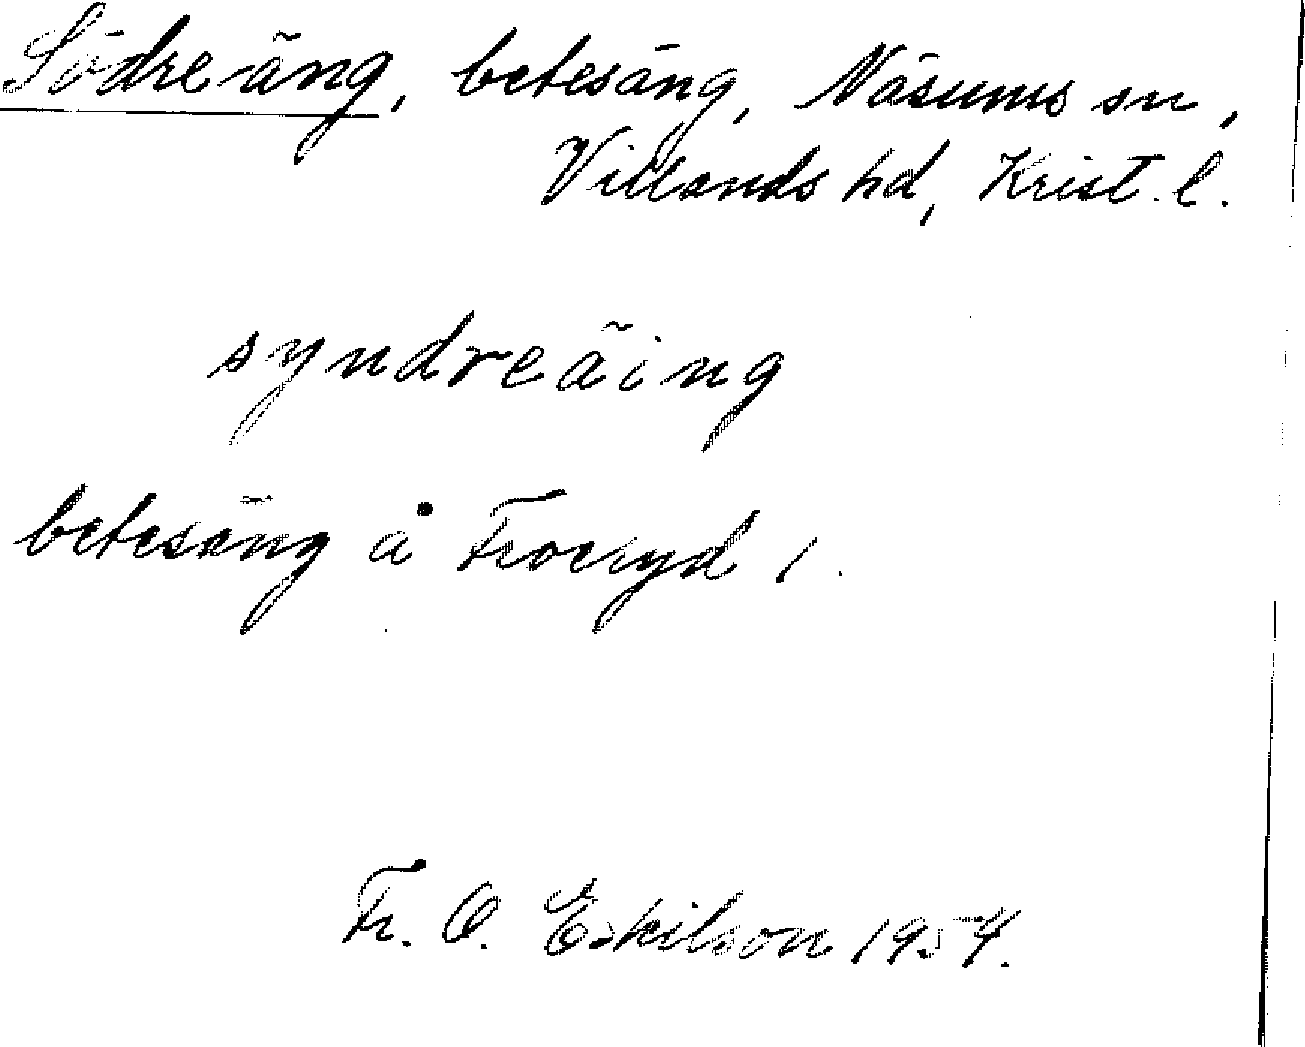 Södre äng, betesäng, Näsums sn,
Villands hd, Krist. l.
syndreãing
betesäng å Froeryd 1.
Fr. O. Eskilson 1954.